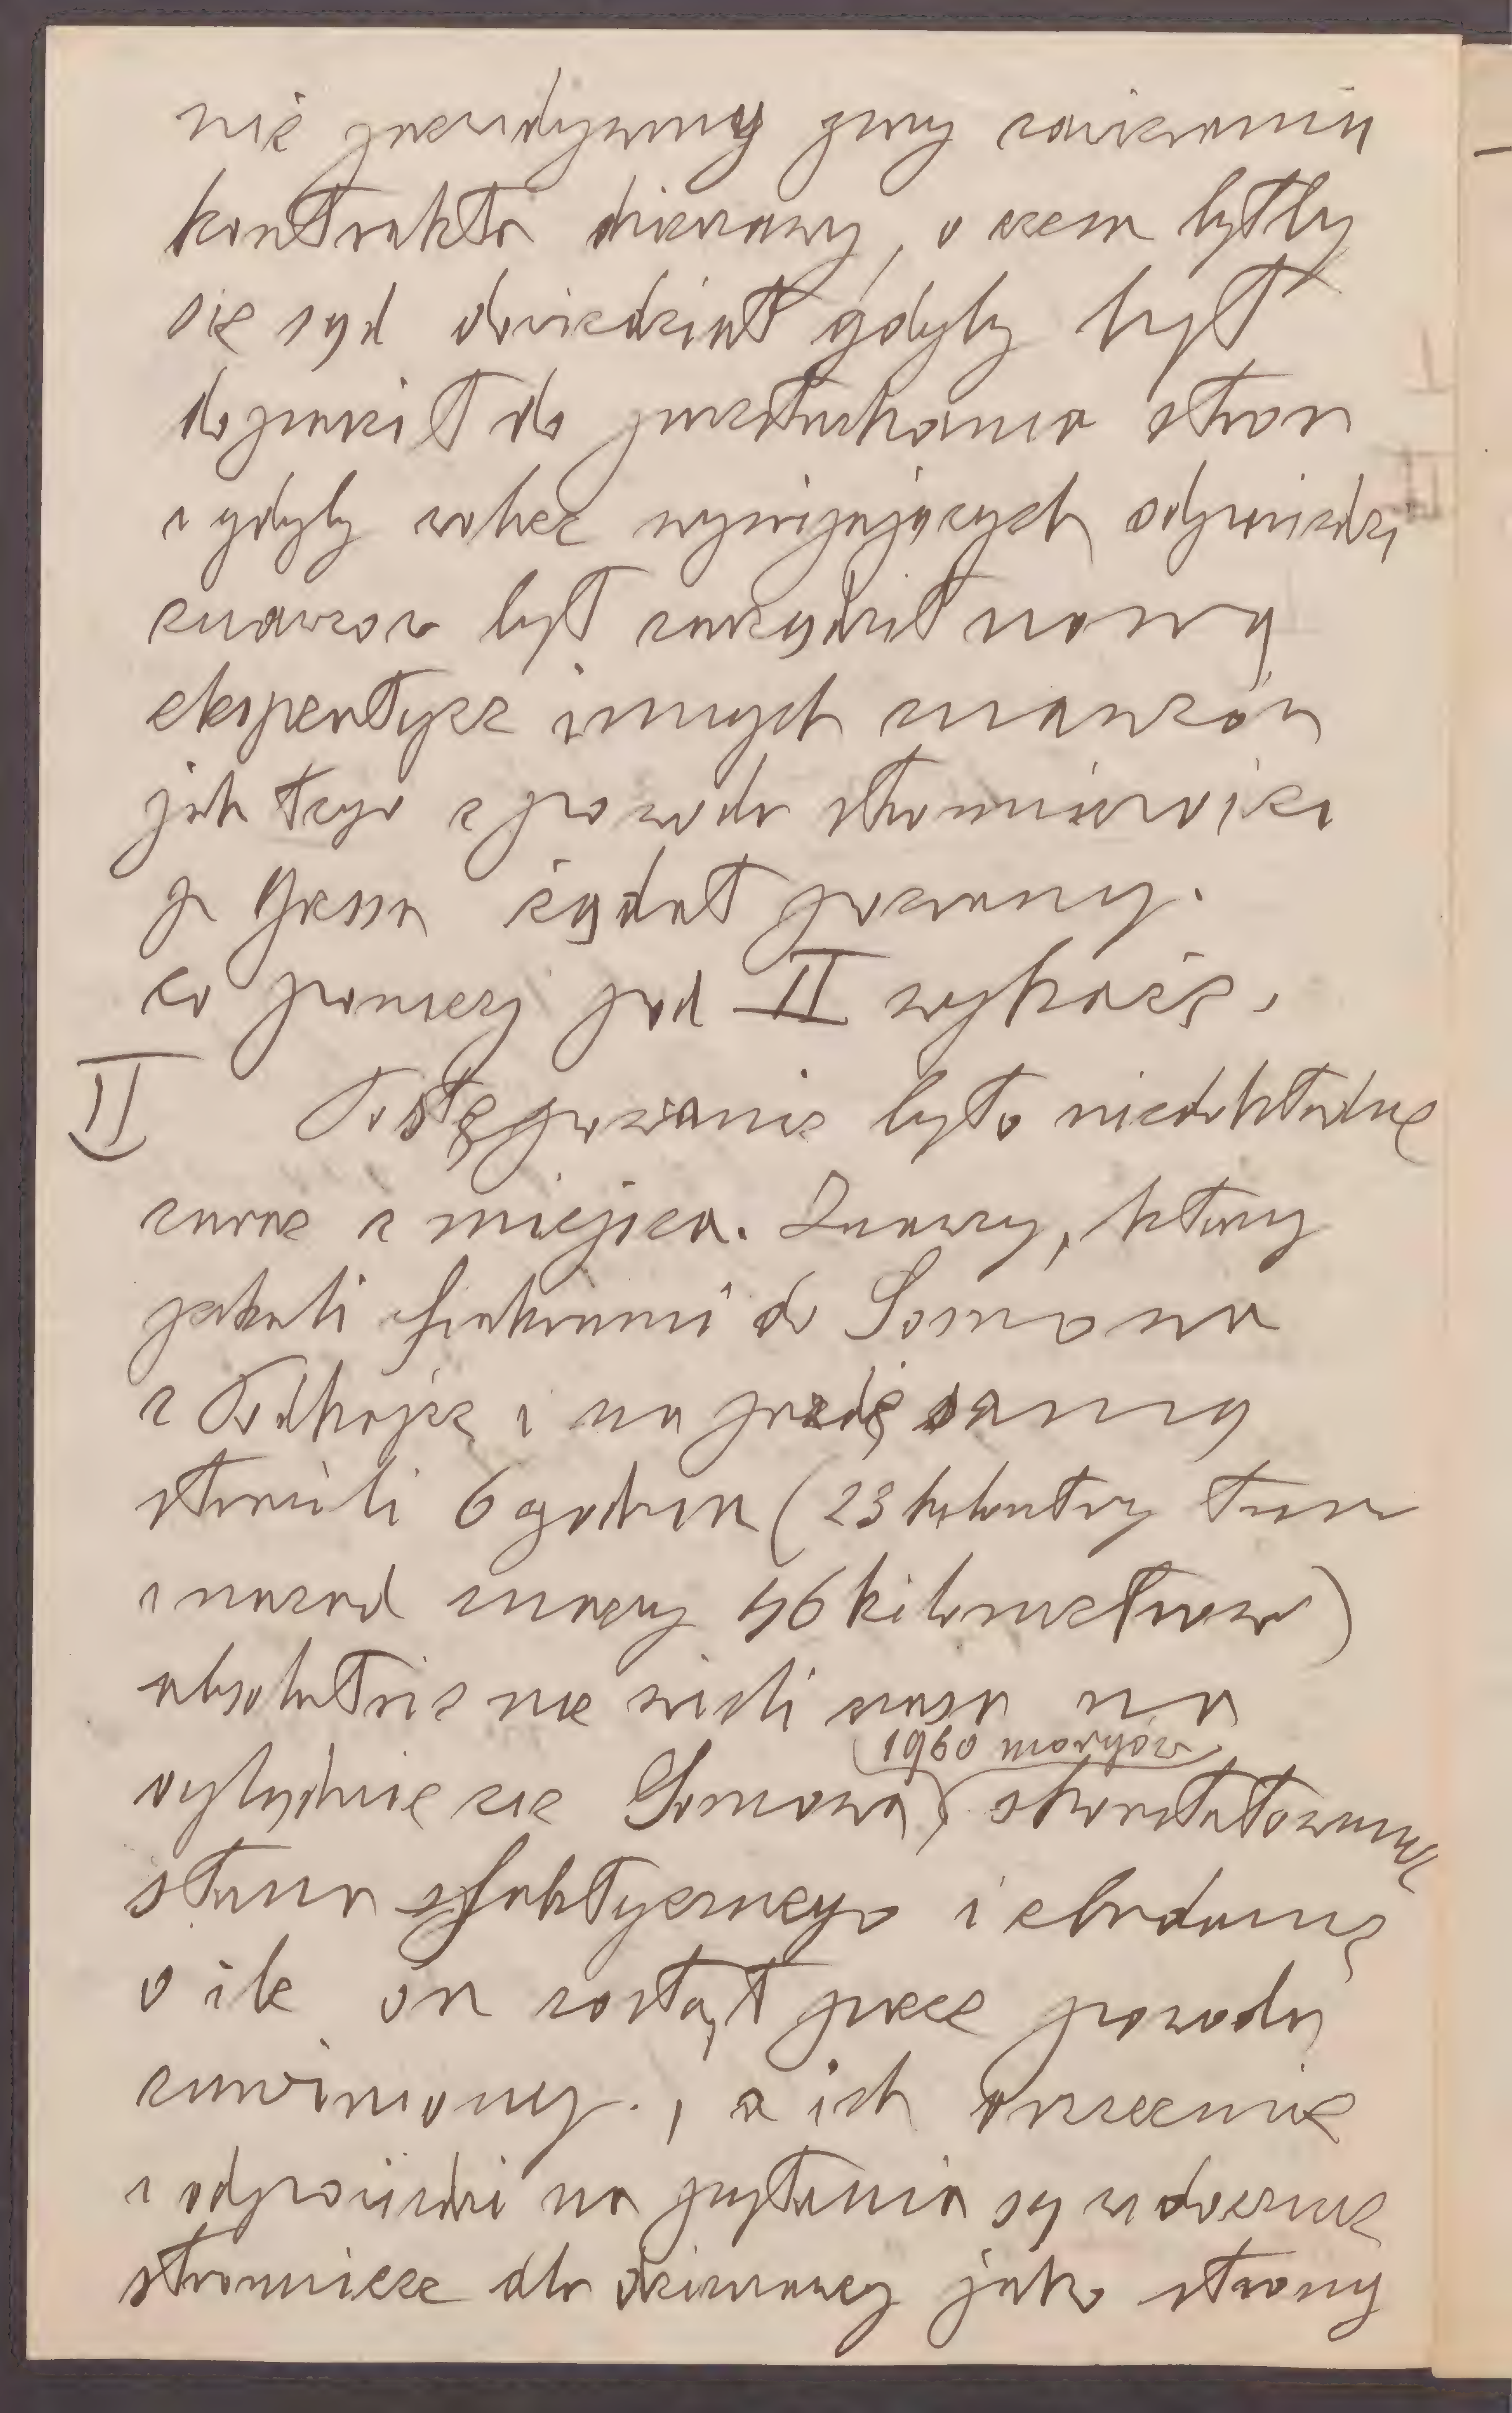 nie przewidzywany przy zawieraniu
kontraktu dzierżawy, o czem byłby
się sąd dowiedział gdyby był
dopuścił do przesłuchania stron
i gdyby wobec wymijających odpowiedzi
znawców był zarządził nową
ekspertyzę innych znawców
jak tego z powodu stronniczości
p żądał pozwany.
co poniżej pod II wykażę.
II Postępowanie było niedokładne
zaraz z miejsca. Znawcy, którzy
jechali fiakrami do Somowa
z Podhajec i na jazdę samą
stracili 6 godzin (23 kilometry tam
i nazad znaczy 46 kilometrów)
absolutnie nie mieli czasu na
oglądnięcie Somowa (1960 morgów), skonstatowanie
stanu faktycznego i zbadanie
o ile on został przez powoda
zawiniony., a ich orzeczenie
i odpowiedzi na pytania są widocznie
stronnicze dla dzierżawcy jako strony